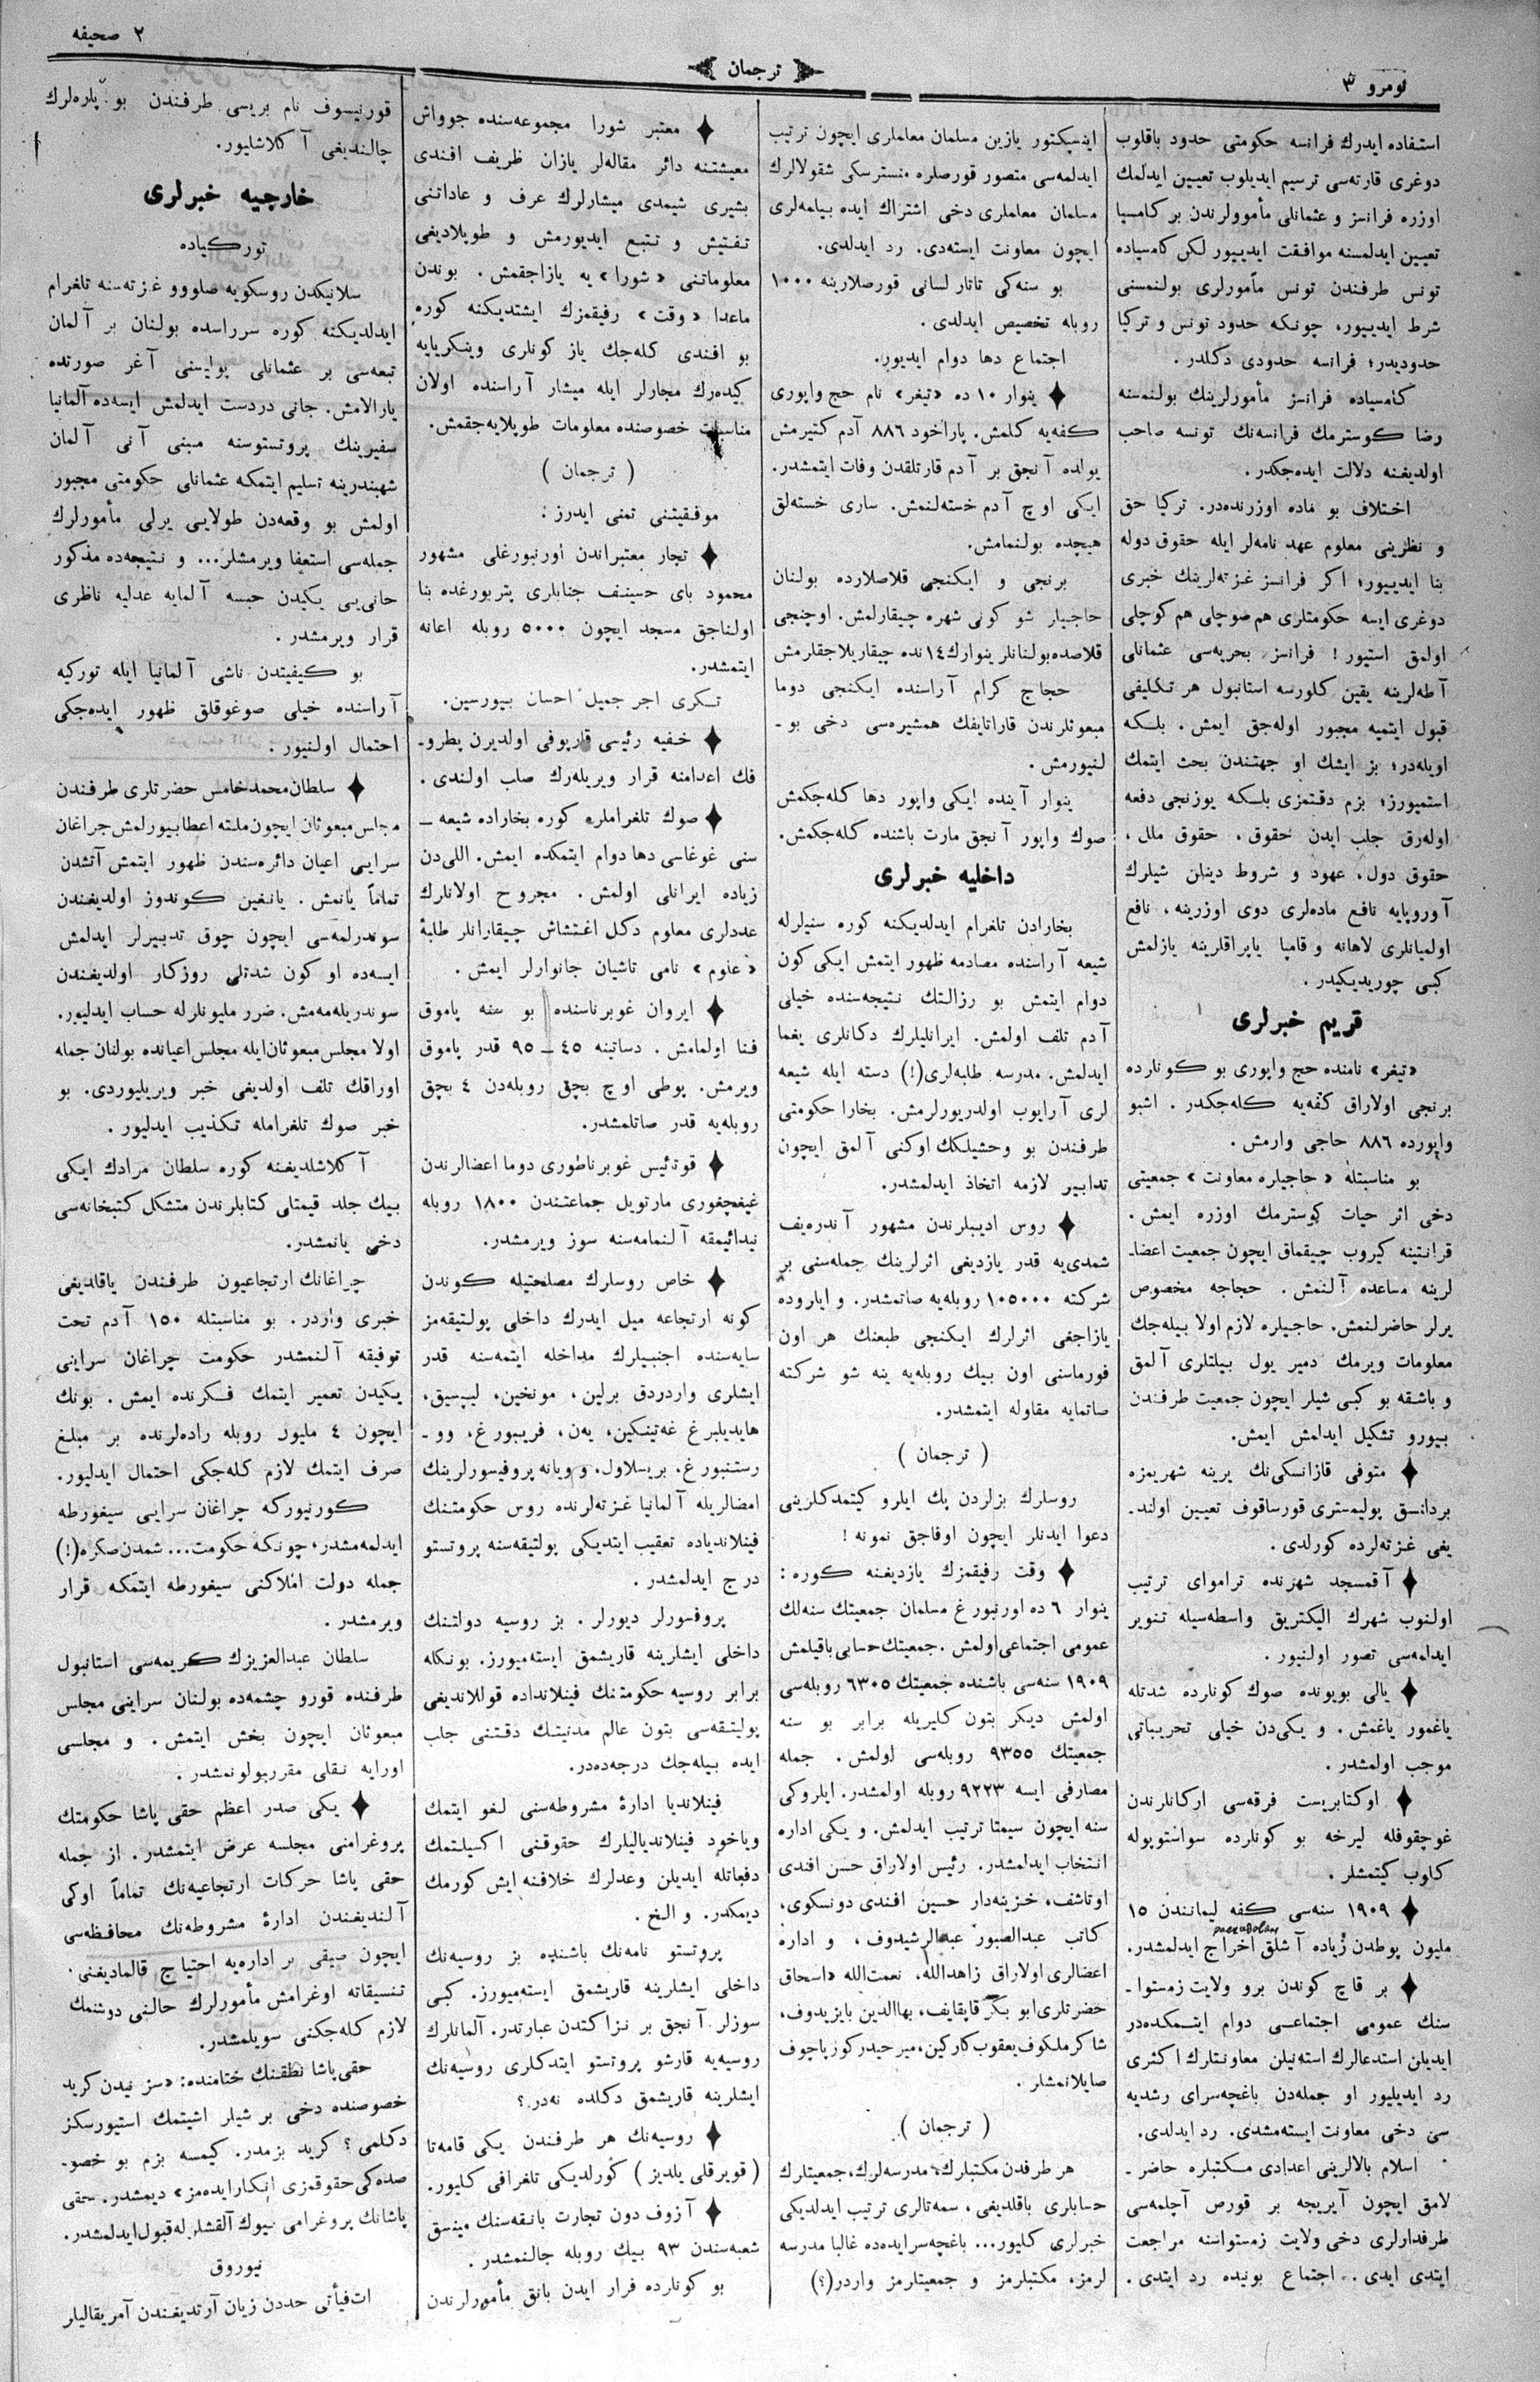 نومرو ٣
ترجمان
٢ صحيفه
استفاده ايدرك فرانسه حكومتى حدود باقلوب
دوغرى قارته‌سى ترسيم ايديلوب تعيين ايدلمك
اوزره فرانسز و عثمانلى مأموولرندن بر كامسيا
تعيين ايدلمسنه موافقت ايدييور لكن كامسياده
تونس طرفندن تونس مأمورلرى بولنمسنى
شرط ايدييور، چونكه حدود تونس و تركيا
حدوديدر؛ فرانسه حدودى دكلدر.
كامسياده فرانسز مأمورلرينك بولنمسنه
رضا كوسترمك فرانسه‌نك تونسه صاحب
اولديغنه دلالت ايده‌جكدر.
اختلاف بو ماده اوزرنده‌در. تركيا حق
و نظرينى معلوم عهد نامه‌لر ايله حقوق دوله
بنا ايدييور؛ اكر فرانسز غزته‌لرينك خبرى
دوغرى ايسه حكومتلرى هم صوچلى هم كوچلى
اولمق استيور! فرانسز بحريه‌سى عثمانلى
آطه‌لرينه يقين كلورسه استانبول هر تكليفى
قبول ايتميه مجبور اوله‌جق ايمش. بلكه
اويله‌در؛ بز ايشك او جهتندن بحث ايتمك
استميورز؛ بزم دقتمزى بلكه يوزنجى دفعه
اوله‌رق جلب ايدن حقوق، حقوق ملل،
حقوق دول، عهود و شروط دينلن شيلرك
آوروپايه نافع ماده‌لرى دوى اوزرينه، نافع
اولميانلرى لاهانه و قامپا ياپراقلرينه يازلمش
كبى چوريديكيدر.
قريم خبرلرى
«تيغر» نامنده حج واپورى بو كونلرده
برنجى اولاراق كفه‌يه كله‌جكدر. اشبو
واپورده ٨٨٦ حاجى وارمش.
بو مناسبتله «حاجيلره معاونت» جمعيتى
دخى اثر حيات كوسترمك اوزره ايمش.
قرانتينه كيروب چيقماق ايچون جمعيت اعضا-
لرينه مساعده آلنمش. حجاجه مخصوص
يرلر حاضرلنمش. حاجيلره لازم اولا بيله‌جك
معلومات ويرمك دمير يول بيلتلرى آلمق
و باشقه بو كبى شيلر ايچون جمعيت طرفندن
بيورو تشكيل ايدلمش ايمش.
متوفى قازانسكى‌نك يرينه شهريمزه
بردانسق پوليمسترى قورساقوف تعيين اولند-
يغى غزته‌لرده كورلدى.
آقمسجد شهرنده تراموای ترتيب
اولنوب شهرك اليكتريق واسطه‌سيله تنوير
ايدلمه‌سى تصور اولنيور.
يالى بويونده صوك كونلرده شدتله
ياغمور ياغمش. و يكى‌دن خيلى تخريباتى
موجب اولمشدر.
اوكتابريست فرقه‌سى اركانلرندن
غوچقوقله ليرخه بو كونلرده سواستوپوله
كلوب كيتمشلر.
١٩٠٩ سنه‌سى كفه ليمانندن ١٥
مليون پوطدن زياده آشلق اخراج ايدلمشدر.
بر قاچ كوندن برو ولايت زمستوا-
سنك عمومى اجتماعى دوام ايتمكده‌در
ايديلن استدعالرك استه‌نيلن معاونتلرك اكثرى
رد ايديلييور او جمله‌دن باغچه‌سراى رشديه
سى دخى معاونت ايسته‌مشدى. رد ايدلدى.
اسلام بالالرينى اعدادى مكتبلره حاضر-
لامق ايچون آيريجه بر قورص آچلمه‌سى
طرفدارلرى دخى ولايت زمستواسنه مراجعت
ايتدى ايدى. اجتماع بونيده رد ايتدى.
اينسپكتور يازين مسلمان معلملرى ايچون ترتيب
ايدلمه‌سى متصور قورصلره منسترسكى شقولالرك
مسلمان معلملرى دخى اشتراك ايده بيلمه‌لرى
ايچون معاونت ايسته‌دى. رد ايدلدى.
بو سنه‌كى تاتار لسانى قورصلارينه ١٠٠٠
روبله تخصيص ايدلدى.
اجتماع دها دوام ايديور.
ينوار ١٠ ده «تيغر» نام حج واپورى
كفه‌يه كلمش. پاراخود ٨٨٦ آدم كتيرمش
يولده آنجق بر آدم قارتلقدن وفات ايتمشدر.
ايكى اوچ آدم خسته‌لنمش. سارى خسته‌لق
هيچده بولنمامش.
برنجى و ايكنجى قلاصلارده بولنان
حاجيلر شو كونى شهره چيقارلمش. اوچنجى
قلاصده بولنانلر ينوارك ١٤ نده چيقاريلاجقلرمش
حجاج كرام آراسنده ايكنجى دوما
مبعوثلرندن قاراتايفك همشيره‌سى دخى بو-
لنيورمش.
ينوار آينده ايكى واپور دها كله‌جكمش
صوك واپور آنجق مارت باشنده كله‌جكمش.
داخليه خبرلرى
بخارادن تلغرام ايدلديكنه كوره سنيلرله
شيعه آراسنده مصادمه ظهور ايتمش ايكى كون
دوام ايتمش بو رزالتك نتيجه‌سنده خيلى
آدم تلف اولمش. ايرانليلرك دكانلرى يغما
ايدلمش. مدرسه طلبه‌لرى(!) دسته ايله شيعه
لرى آرايوب اولدريورلرمش. بخارا حكومتى
طرفندن بو وحشيلكك اوكنى آلمق ايچون
تدابير لازمه اتخاذ ايدلمشدر.
روس اديبلرندن مشهور آندره‌يف
شمدى‌يه قدر يازديغى اثرلرينك جمله‌سنى بر
شركته ١٠٥٠٠٠ روبله‌يه صاتمشدر. و ايلروده
يازاجغى اثرلرك ايكنجى طبعنك هر اون
فورماسنى اون بيك روبله‌يه ينه شو شركته
صاتمايه مقاوله ايتمشدر.
( ترجمان )
روسلرك بزلردن پك ايلرو كيتمدكلرينى
دعوا ايدنلر ايچون اوفاجق نمونه!
وقت رفيقمزك يازديغنه كوره:
ينوار ٦ ده اورنبورغ مسلمان جمعيتك سنه‌لك
عمومى اجتماعى اولمش. جمعيتك حسابى باقيلمش
١٩٠٩ سنه‌سى باشنده جمعيتك ٦٣٠٥ روبله‌سى
اولمش ديكر بتون كليريله برابر بو سنه
جمعيتك ٩٣٥٥ روبله‌سى اولمش. جمله
مصارفى ايسه ٩٢٢٣ روبله اولمشدر. ايلروكى
سنه ايچون سيمتا ترتيب ايدلمش. و يكى اداره
انتخاب ايدلمشدر. رئيس اولاراق حسن افندى
اوتاشف، خزينه‌دار حسين افندى دونسكوى،
كاتب عبدالصبور عبدالرشيدوف، و اداره
اعضالرى اولاراق زاهدالله. نعمت‌الله «اسحاق
حضرتلرى ابو بكر قاپقايف، بهاالدين بايزيدوف،
شاكر ملكوف يعقوب كاركين، مير حيدر كوزياچوف
صايلانمشلر.
( ترجمان )
هر طرفدن مكتبلرك، مدرسه‌لرك، جمعيتلرك
حسابلرى باقلديغى، سمه‌تالرى ترتيب ايدلديكى
خبرلرى كليور... باغچه‌سرايده‌ده غالبا مدرسه
لرمز، مكتبلرمز و جمعيتلرمز واردر(؟)
معتبر شورا مجموعه‌سنده جوواش
معيشتنه دائر مقاله‌لر يازان ظريف افندى
بشيرى شيمدى ميشارلرك عرف و عاداتنى
تفتيش و تتبع ايديورمش و طوپلاديغى
معلوماتنى «شورا» يه يازاجقمش. بوندن
ماعدا «وقت» رفيقمزك ايشتديكنه كوره
بو افندى كله‌جك ياز كونلرى وينكريايه
كيده‌رك مجارلر ايله ميشار آراسنده اولان
مناسبات خصوصنده معلومات طوپلايه‌جقمش.
( ترجمان )
موفقيتنى تمنى ايدرز.
تجار معتبراندن اورنبورغلى مشهور
محمود باى حسينف جنابلرى پتربورغده بنا
اولناجق مسجد ايچون ٥٠٠٠ روبله اعانه
ايتمشدر.
تكرى اجر جميل احسان بيورسين.
خفيه رئيسى قارپوفى اولديرن پطرو-
فك اعدامنه قرار ويريله‌رك صلب اولندى.
صوك تلغراملره كوره بخاراده شيعه-
سنى غوغاسى دها دوام ايتمكده ايمش. اللى‌دن
زياده ايرانلى اولمش. مجروح اولانلرك
عددلرى معلوم دكل اغتشاش چيقارانلر طلبهٔ
«علوم» نامى تاشيان جانوارلر ايمش.
ايروان غوبرناسنده بو سنه پاموق
فنا اولمامش. دساتينه ٤٥ــ٩٥ قدر پاموق
ويرمش. پوطى اوچ بچق روبله‌دن ٤ بچق
روبله‌يه قدر صاتلمشدر.
قوتئيس غوبرناطورى دوما اعضالرندن
غيغچغورى مارتويل جماعتندن ١٨٠٠ روبله
نيدائيمقه آلنمامه‌سنه سوز ويرمشدر.
خاص روسلرك مصلحتيله كوندن
كونه ارتجاعه ميل ايدرك داخلى پولتيقه‌مز
سايه‌سنده اجنبيلرك مداخله ايتمه‌سنه قدر
ايشلرى واردردق برلين، مونخين، ليپسيق،
هايديلبرغ غه‌تينكين، يه‌ن، فريبورغ، وو-
رستنبورغ. بريسلاول. و ويانه پروفيسورلرينك
امضالريله آلمانيا غزته‌لرنده روس حكومتنك
فينلاندياده تعقيب ايتديكى پولتيقه‌سنه پروتستو
درج ايدلمشدر.
پروفسورلر ديورلر. بز روسيه دولتنك
داخلى ايشلرينه قاريشمق ايسته‌ميورز. بونكله
برابر روسيه حكومتنك فينلانداده قوللانديغى
پوليتقه‌سى بتون عالم مدنيتك دقتنى جلب
ايده بيله‌جك درجه‌ده‌در.
فينلانديا ادارهٔ مشروطه‌سنى لغو ايتمك
وياخود فينلانديالیلرك حقوقنى اكسيلتمك
دفعاتله ايديلن وعدلرك خلافنه ايش كورمك
ديمكدر. و الخ.
پروتستو نامه‌نك باشنده بز روسيه‌نك
داخلى ايشلرينه قاريشمق ايسته‌ميورز. كبى
سوزلر آنجق بر نزاكتدن عبارتدر. آلمانلرك
روسيه‌يه قارشو پروتستو ايتدكلرى روسيه‌نك
ايشلرينه قاريشمق دكلده نه‌در؟
روسيه‌نك هر طرفندن يكى قامه‌تا
(قويرقلى يلديز) كورلديكى تلغرافى كليور.
آزوف دون تجارت بانقه‌سنك مينسق
شعبه‌سندن ٩٣ بيك روبله جالنمشدر.
بو كونلرده فرار ايدن بانق مأمورلرندن
قورنيسوف نام بريسى طرفندن بو پاره‌لرك
چالنديغى آكلاشليور.
خارجيه خبرلرى
توركياده
سلانيكدن روسكويه صلووو غزته‌سنه تلغرام
ايدلديكنه كوره سرراسده بولنان بر آلمان
تبعه‌سى بر عثمانلى پوليسنى آغر صورتده
يارالامش. جانى دردست ايدلمش ايسه‌ده آلمانيا
سفيرينك پروتستوسنه مبنى آنى آلمان
شهبندرينه تسليم ايتمكه عثمانلى حكومتى مجبور
اولمش بو وقعه‌دن طولايى يرلى مأمورلرك
جمله‌سى استعفا ويرمشلر... و نتيجه‌ده مذكور
جانى‌يى يكيدن حبسه آلمايه عدليه ناظرى
قرار ويرمشدر.
بو كيفيتدن ناشى آلمانيا ايله توركيه
آراسنده خيلى صوغوقلق ظهور ايده‌جكى
احتمال اولنيور.
سلطان محمد خامس حضرتلرى طرفندن
مجلس مبعوثان ايچون ملته اعطا بيورلمش جراغان
سرايى اعيان دائره‌سندن ظهور ايتمش آتشدن
تماماً يانمش. يانغين كوندوز اولديغندن
سوندرلمه‌سى ايچون چوق تدبيرلر ايدلمش
ايسه‌ده او كون شدتلى روزكار اولديغندن
سوندريله‌مه‌مش. ضرر مليونلرله حساب ايدليور.
اولا مجلس مبعوثان ايله مجلس اعيانده بولنان جمله
اوراقك تلف اولديغى خبر ويريليوردى. بو
خبر صوك تلغرامله تكذيب ايدليور.
آكلاشلديغنه كوره سلطان مرادك ايكى
بيك جلد قيمتلى كتابلرندن متشكل كتبخانه‌سى
دخى يانمشدر.
چراغانك ارتجاعيون طرفندن ياقلديغى
خبرى واردر. بو مناسبتله ١٥٠ آدم تحت
توقيفه آلنمشدر حكومت چراغان سراينى
يكيدن تعمير ايتمك فكرنده ايمش. بونك
ايچون ٤ مليون روبله راده‌لرنده بر مبلغ
صرف ايتمك لازم كله‌جكى احتمال ايدليور.
كورنيوركه چراغان سرايى سيغورطه
ايدلمه‌مشدر، چونكه حكومت... شمدن صكره(!)
جمله دولت املاكنى سيغورطه ايتمكه قرار
ويرمشدر.
سلطان عبدالعزيزك كريمه‌سى استانبول
طرفنده قورو چشمه‌ده بولنان سراينى مجلس
مبعوثان ايچون بخش ايتمش. و مجلسى
اورايه نقلى مقرر بولونمشدر.
يكى صدر اعظم حقى پاشا حكومتك
پروغرامنى مجلسه عرض ايتمشدر. از جمله
حقى پاشا حركات ارتجاعيه‌نك تماماً اوكى
آلنديغندن ادارهٔ مشروطه‌نك محافظه‌سى
ايچون صيقى بر اداره‌يه احتياج قالماديغنى.
تنسيقاته اوغرامش مأمورلرك حالنى دوشنمك
لازم كله‌جكنى سويلمشدر.
حقى پاشا نطقنك ختامنده: «سز نيدن كريد
خصوصنده دخى بر شيلر اشيتمك استيورسكز
دكلمى؟ كريد بزمدر. كيمسه بزم بو خصو-
صده‌كى حقوقمزى انكار ايده‌مز» ديمشدر. حقى
پاشانك پروغرامى بيوك آلقشلرله قبول ايدلمشدر.
نيوروق
ات فيأتى حددن زيان آرتديغندن آمريقاليلر